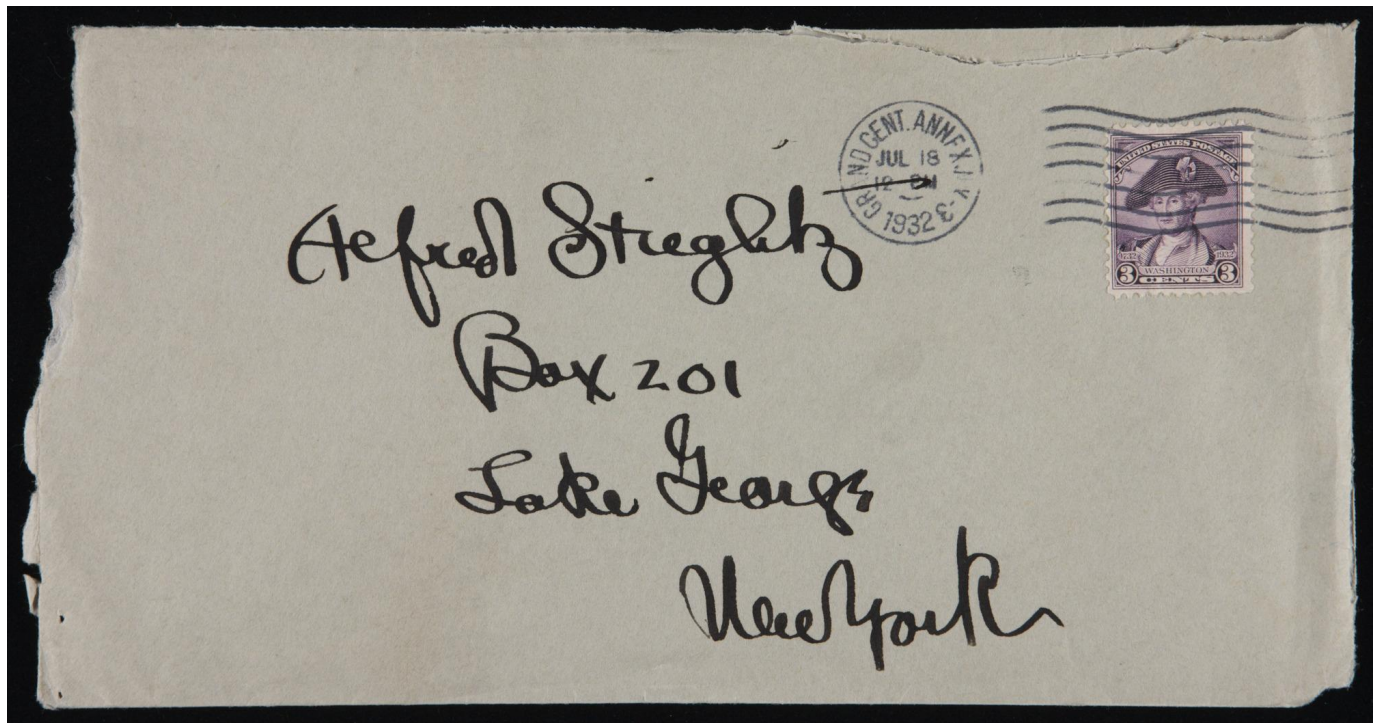 GRAND CENT. ANNEX. N.Y.
JUL 18
12 PM
1932
UNITED STATES POSTAGE
1732 1932
WASHINGTON
3 CENTS 3
Alfred Stieglitz
Box 201
Lake George
New York